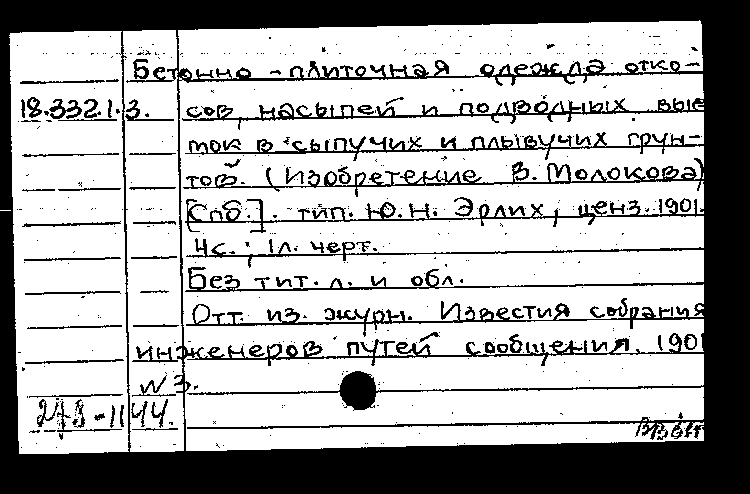 Бетонно-плиточная одежда отко-
18.332.1.3. сов, насыпей и подводных вые
мок в сыпучих и плывучих грун-
тов. (Изобретение В. Молокова)
[Спб.]. тип. Ю.Н. Эрлих, ценз. 1901.
4с.; 1л. черт.
Без тит. л. и обл.
Отт. из. журн. Известия собрания
инженеров путей сообщения. 1901
N 3.
44.